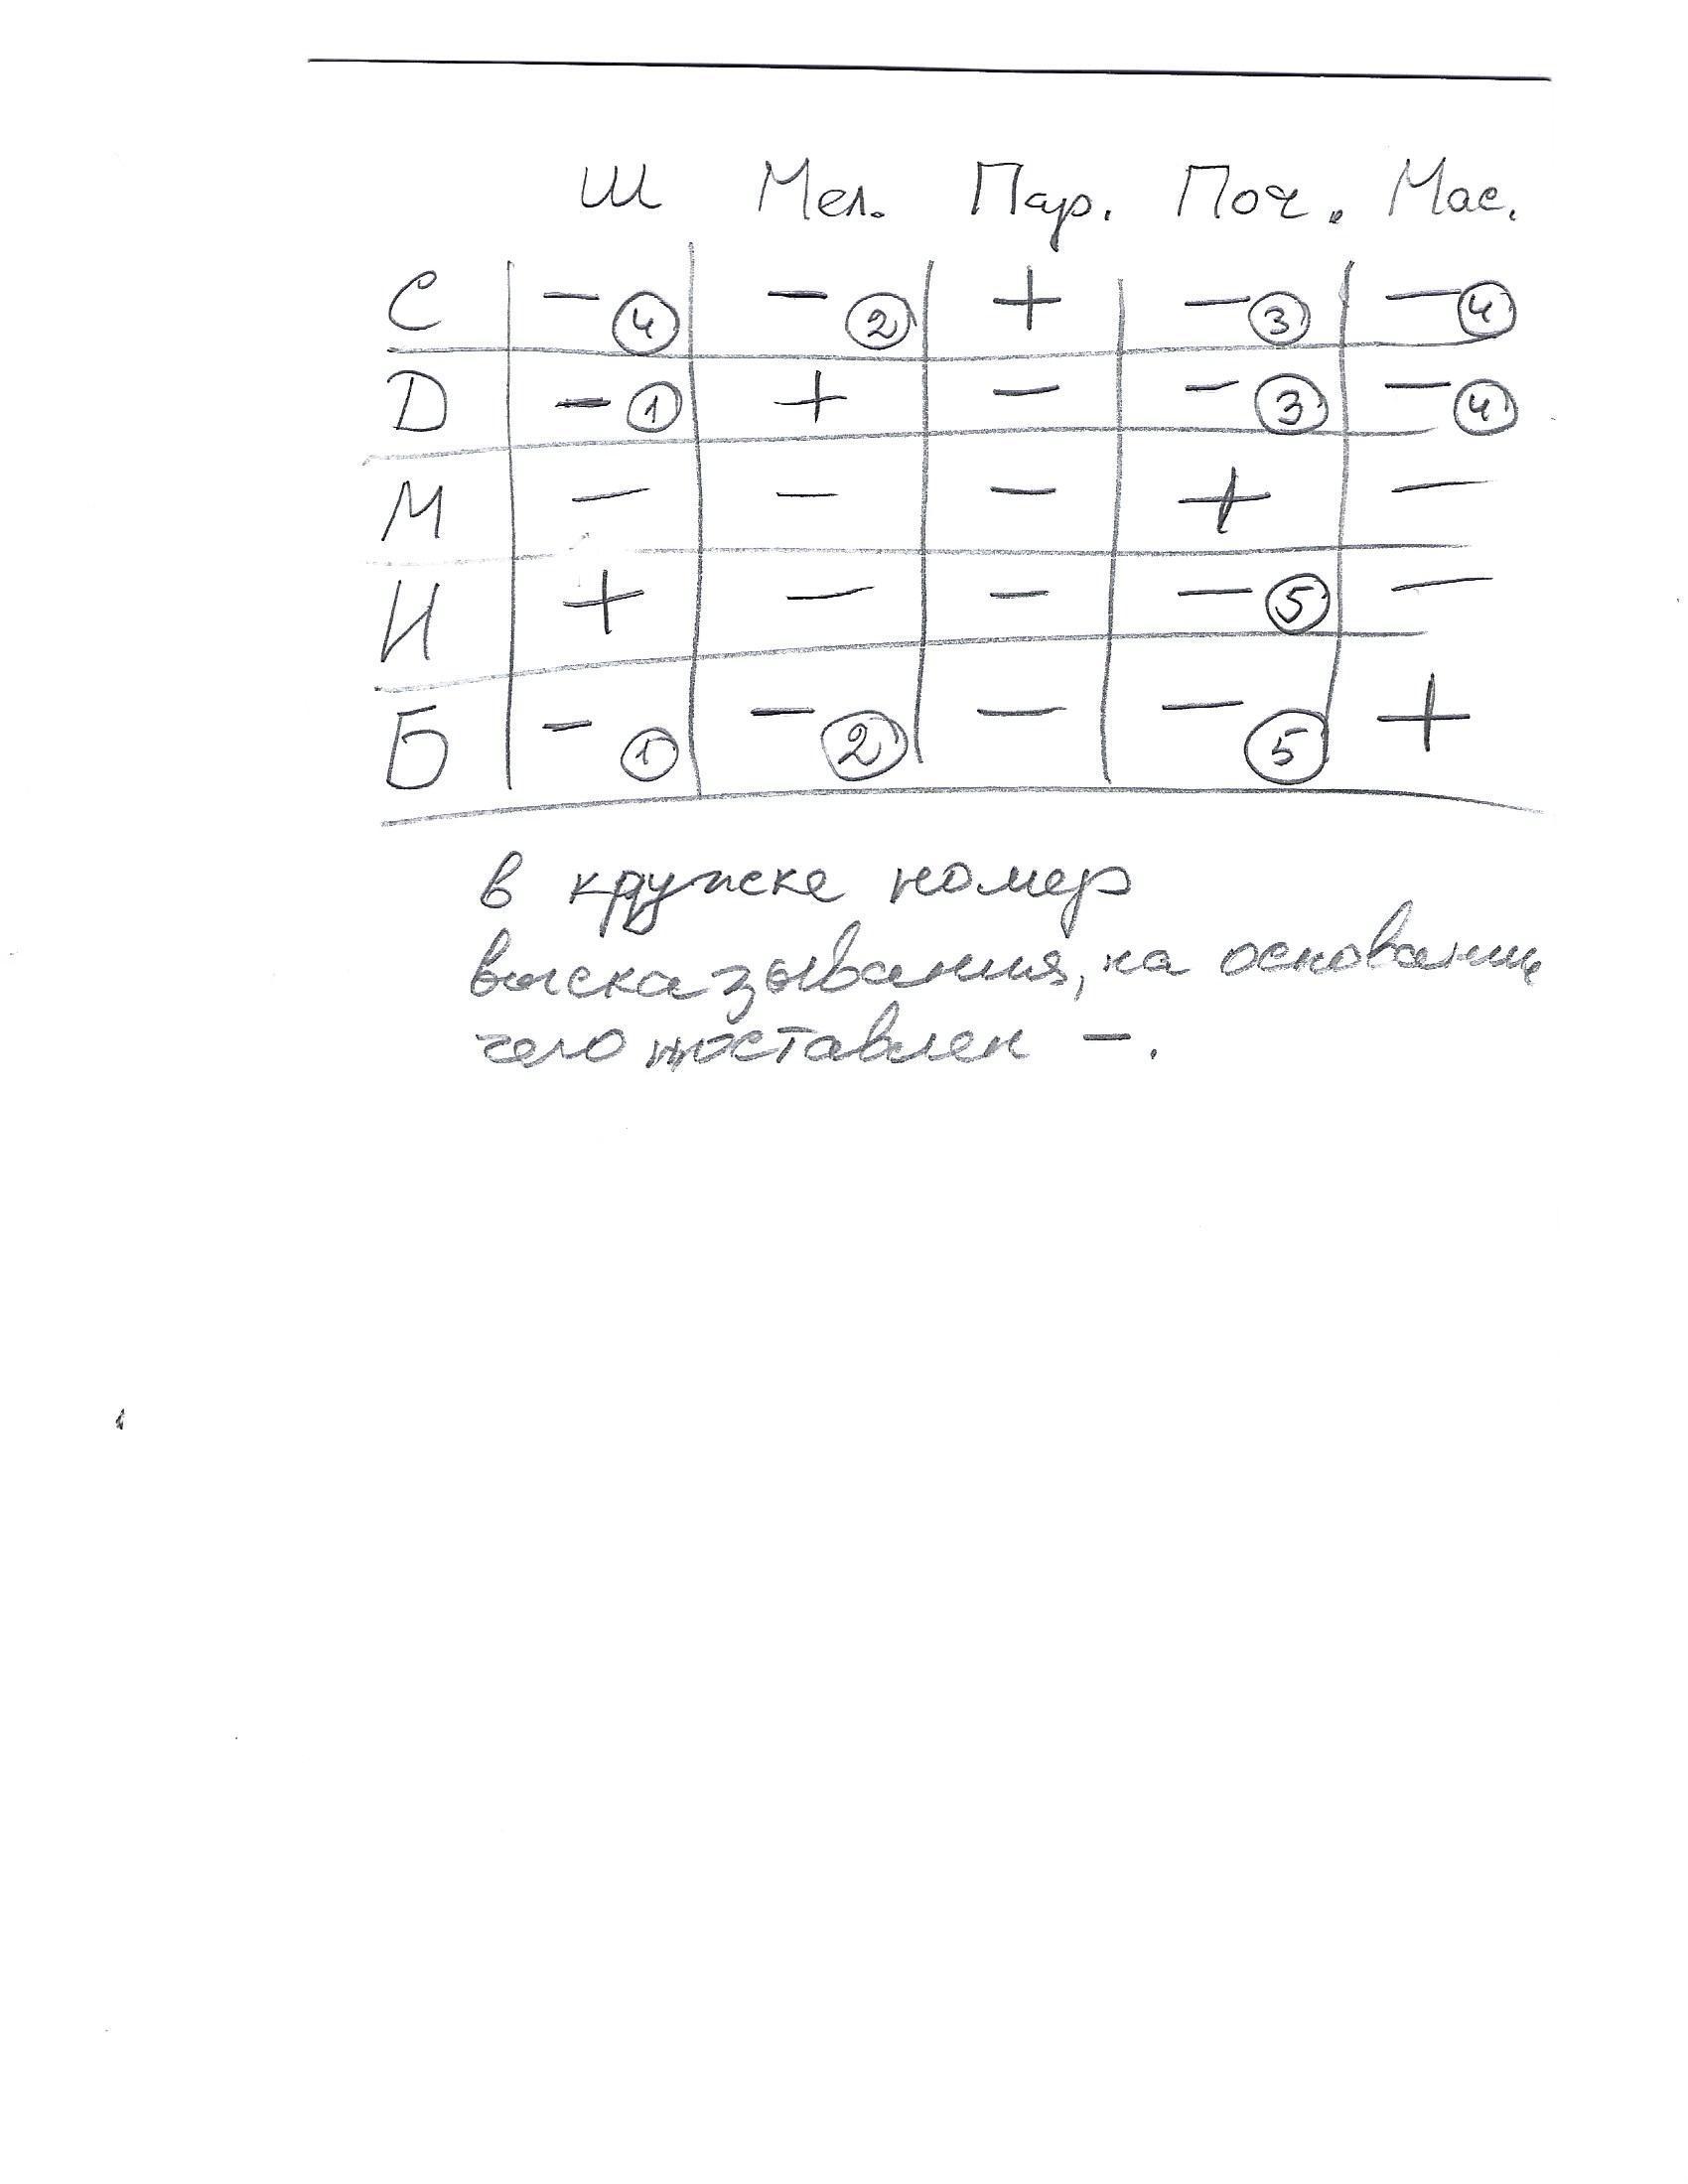 Ш Мел. Пар. Поч. Мас.
С - 4 - 2 + - 3 - 4
D - 1 + - - 3 - 4
М - - - + -
И + - - - 5 -
Б - 1 - 2 - - 5 +
в кружке номер
высказывания, на основании
чего поставлен -.